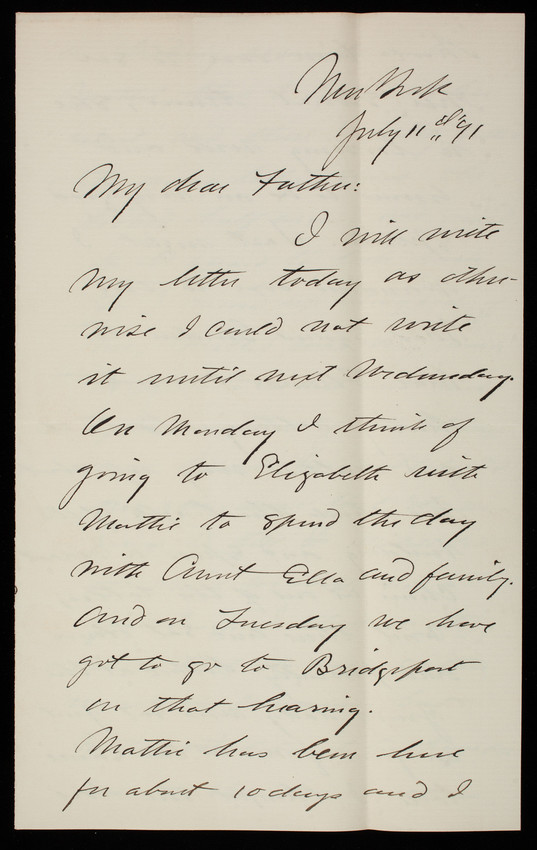 New York
July 11" '91
My dear Father:
I will write
my letter today as other-
wise I could not write
it until next Wednesday.
On Monday I think of
going to Elizabeth with
Mattie to spend the day
with Aunt Ella and family.
And on Tuesday we have
got to go to Bridgeport
on that hearing.
Mattie has been here
for about 10 days and I